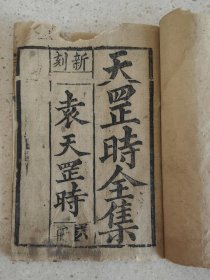 天罡時全集
新刻
袁天罡時